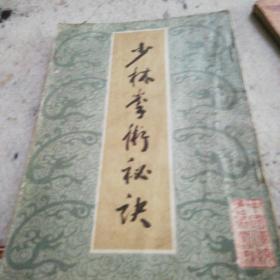 少林拳術秘诀